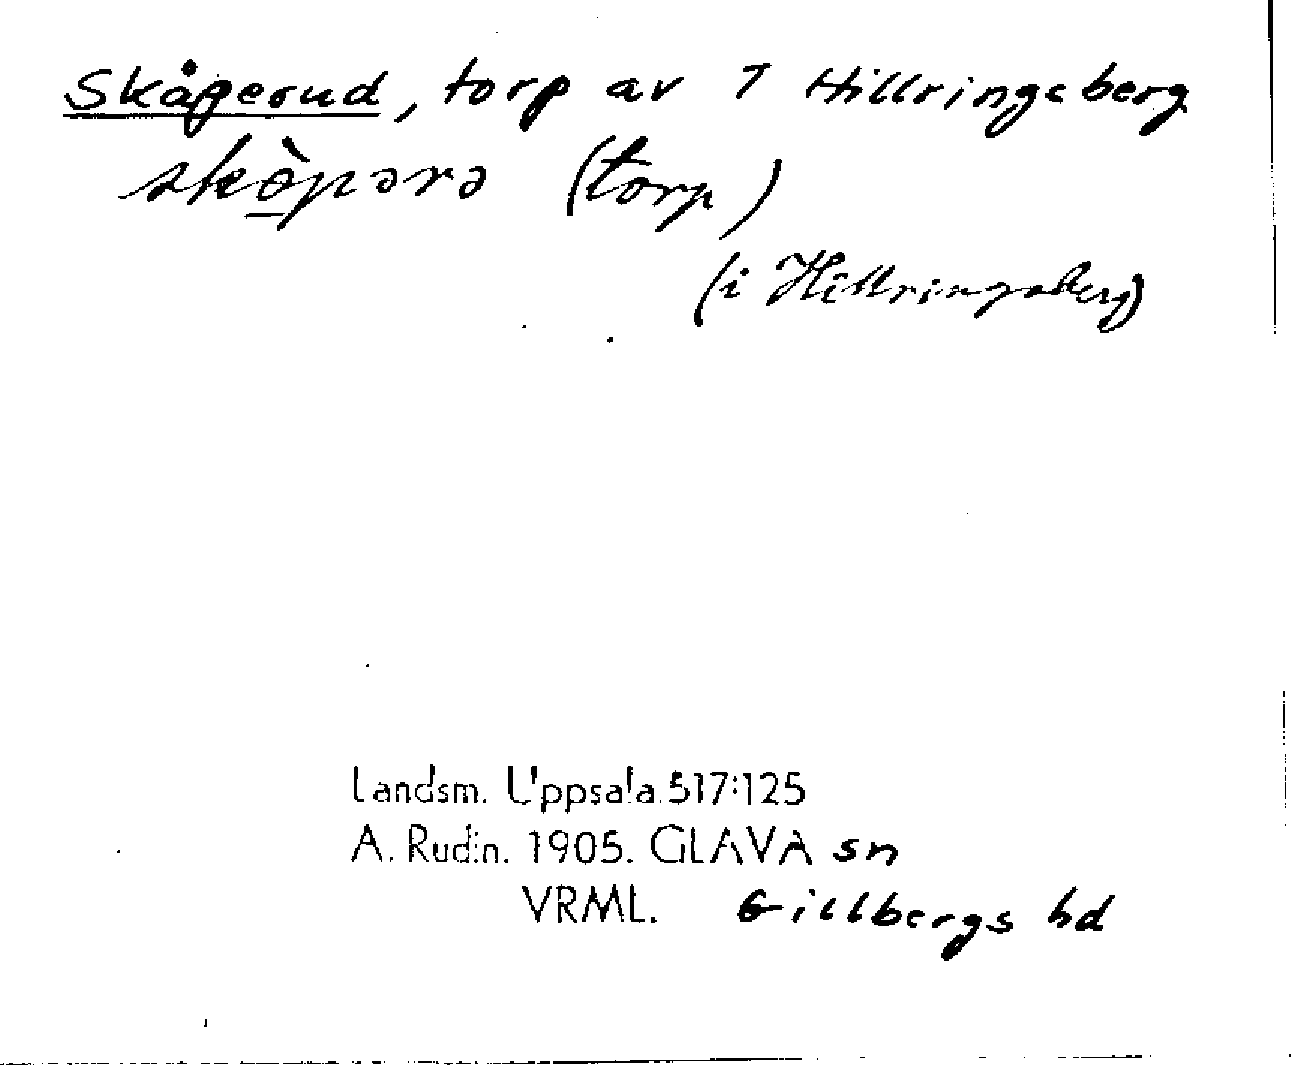 Skåperud, torp av 7 Hillringsberg
skò̱pərə (torp)
(i Hillringsberg)
Landsm. Uppsala 517:125
A. Rudin. 1905. GLAVA sn
VRML. Gillbergs hd